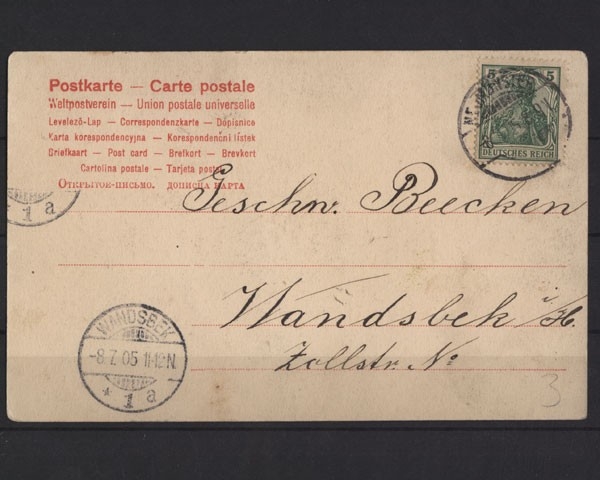 Postkarte — Carte postale
Weltpostverein — Union postale universelle
Levelező-Lap — Correspondenzkarte — Dopisnice
Karta korespondencyjna — Korespondenční lístek
Briefkaart — Post card — Brefkort — Brevkort
Cartolina postale — Tarjeta posta
Открытое-письмо. дописна карта
5 5
NEUMÜNSTER
DEUTSCHES REICH
1 a
Geschw. Beecken
Wandsbek i/H.
Zollstr. No
WANDSBEK
-8.7.05 11-12N.
* 1 a
3